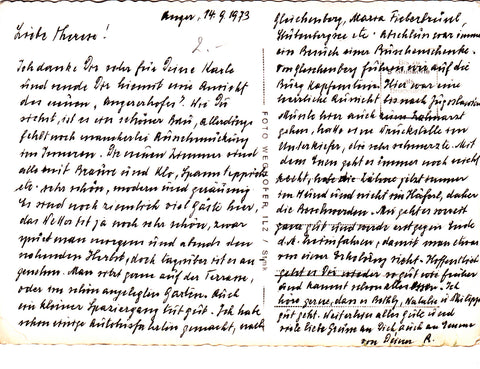 Anger, 14.9.1973
2.-
Liebe Therese!
Ich danke Dir sehr für Deine Karte
und sende Dir hiemit eine Ansicht
des neuen „Angererhofes". Wie Du
siehst, ist es ein schöner Bau, allerdings
fehlt noch mancherlei Ausschmückung
im Inneren. Die neuen Zimmer sind
alle mit Brause und Klo, Spannteppiche
etc. sehr schön, modern und geräumig
Es sind noch ziemlich viel Gäste hier,
das Wetter ist ja noch sehr schön, zwar
spürt man morgens und abends den
nahenden Herbst, doch tagsüber ist es an-
genehm. Man sitzt gerne auf der Terrasse,
oder im schön angelegten Garten. Auch
ein kleiner Spaziergang tut gut. Ich habe
schon einige Autobusfahrten gemacht, nach
FOTO WEGHOFER, ILZ / Stmk
Gleichenberg, Maria
etc. Abschluss war immer
ein Besuch einer Buschenschenke.
Von Gleichenberg fuhren wir auf die
Burg Kapfenstein. Hier war eine
herrliche Aussicht bis nach Jugoslawien
musste hier auch einen Zahnarzt
gehen, hatte eine Druckstelle im
Unterkiefer, die sehr schmerzte. Mit
dem Essen geht es immer noch nicht
recht, habe die Zähne jetzt immer
im Mund und nicht im Häferl, daher
die Beschwerden. Mir geht es sonst
ganz gut und werde erst gegen Ende
d. M. heimfahren, damit man etwas
von einer Erholung sieht. Hoffentlich
geht es Dir wieder so gut wie früher
und kannst schon alles essen. Ich
höre gerne, dass es Bethy, Natalie u Philipp
gut geht. Weiterhin alles Gute und
viele liebe Grüsse an Dich, auch an
von Deiner R.